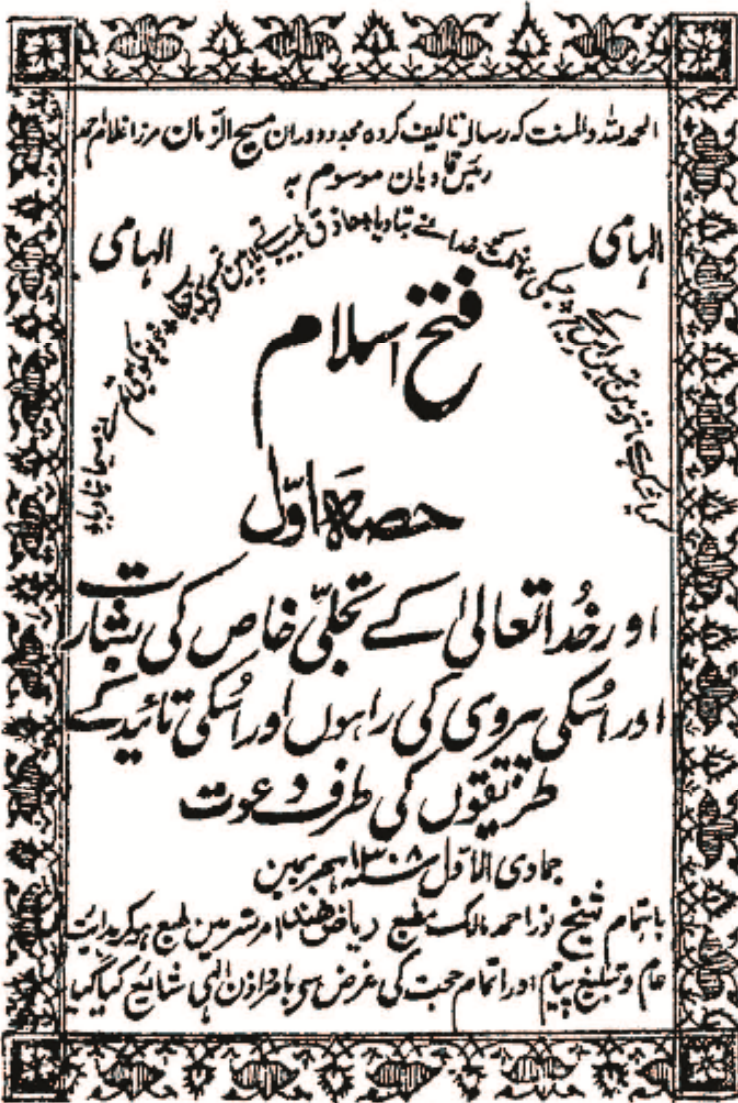 الحمد للہ والمنت کہ رسالہ تالیف کردہ مجدد دوران مسیح الزمان مرزا غلام احمد
رئیس قادیان موسوم بہ
الہامی
الہامی
فتح اسلام
حصہ اوّل
اور خُدا تعالیٰ کے تجلّی خاص کی بشارت
اور اُسکی پیروی کی راہوں اور اُسکی تائید کے
طریقوں کی طرف دعوت
جمادی الاوّل ۱۳۰۸ ہجری میں
باہتمام شیخ نور احمد مالک مطبع ریاض ھند امرتسر میں طبع ہوکر ہدایت
عام و تبلیغ پیام اور اتمام حجت کی غرض سے بامر و اذن الٰہی شائع کیا گیا